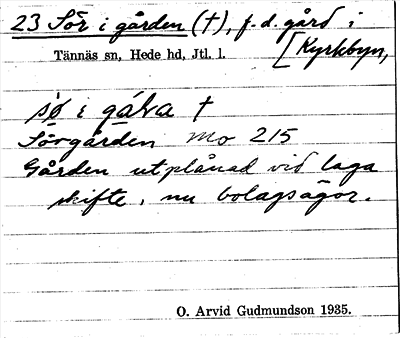 23 Sör i gården (†), f.d. gård i
Tännäs sn, Hede hd, Jtl. l. [Kyrkbyn,
sø̀ i gáɫa †
Sörgården Mo 215
Gården utplånad vid laga
skifte, nu bolagsägor.
O. Arvid Gudmundson 1935.